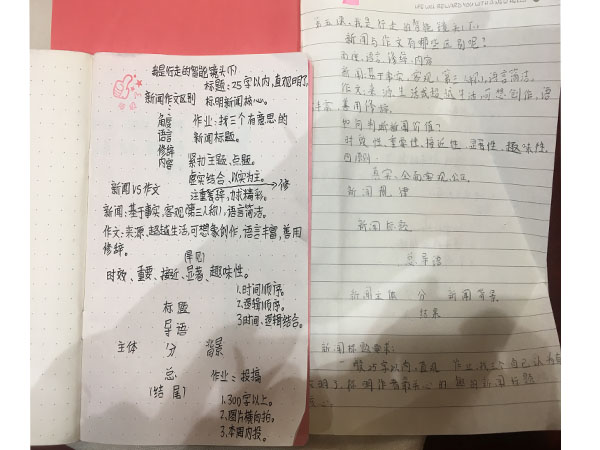 我是行走的智能镜头(下)
标题:25字以内,直观明了,
新闻作文区别
标明新闻核心。
角度
作业:找三个有意思的
语言
新闻标题。
修辞
内容
紧扣主题、点题。
虚实结合、以实为主。
新闻VS作文
注重警辞、力求精彩。
修
新闻:基于事实、客观(第三人称),语言简洁。
作文:来源、超越生活,可想象创作,语言丰富,善用
修辞。
时效、重要、接近、显著、趣味性。
1.时间顺序。
标题
2.逻辑顺序。
导语
3.时间、逻辑结合。
主体
分
背景
总
作业:投搞
(结尾)
1.300字以上。
2.图片横向拍。
3.本周内投。
第五课:我是行走的智能镜头(下)
新闻与作文有哪些区别呢?
角度、语言、修辞、内容
新闻:基于事实、客观、第三人称,语言简洁。
作文:来源生活或超近生活,可想创作,语
善用修辞。
如何判断新闻价值?
时效性、重要性、接近性、显著性、趣味性
四原则:
真实、全面客观、公正
新闻规律
新闻标题
总导语
新闻主体 分 新闻背景
结尾
新闻标题要求:
一般25字以内、直观
作业:找三个自己认为有
趣的新闻标题